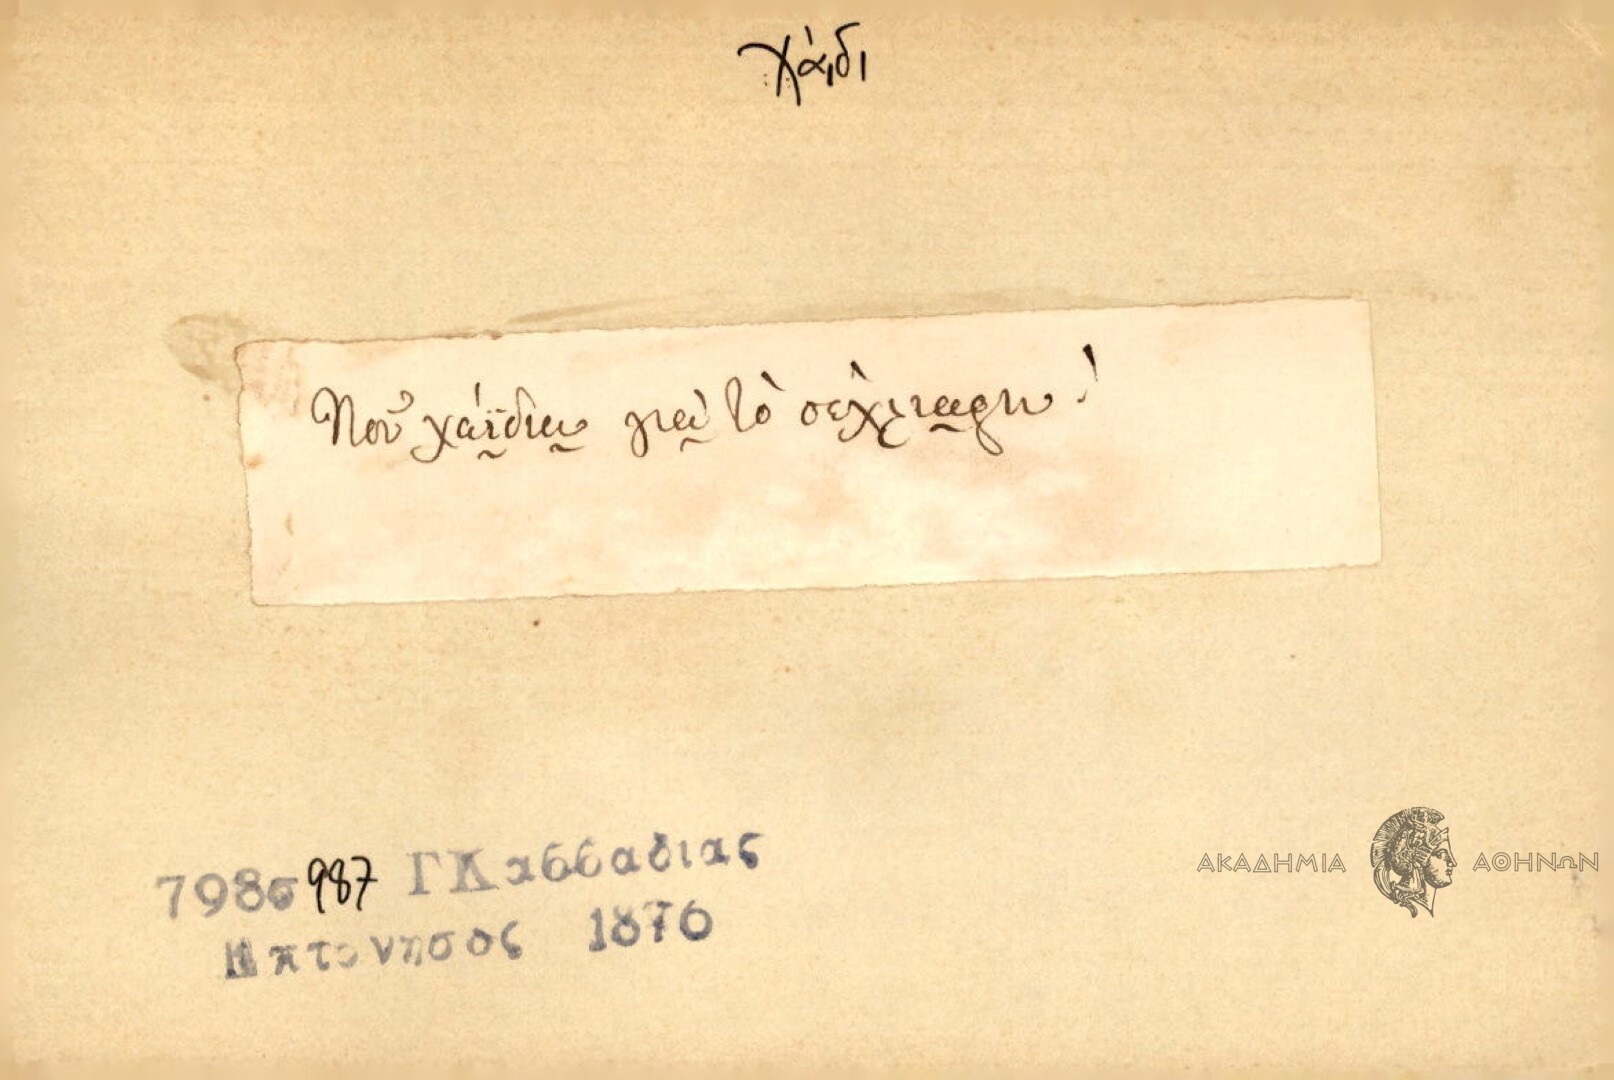 χάιδι
Ποῦ χάϊδια γιὰ τὸ σεχλιαρη!
798σ 987 ΓΚαββαδιας
Επτανησος 1876
ΑΚΑΔΗΜΙΑ ΑΘΗΝΩΝ